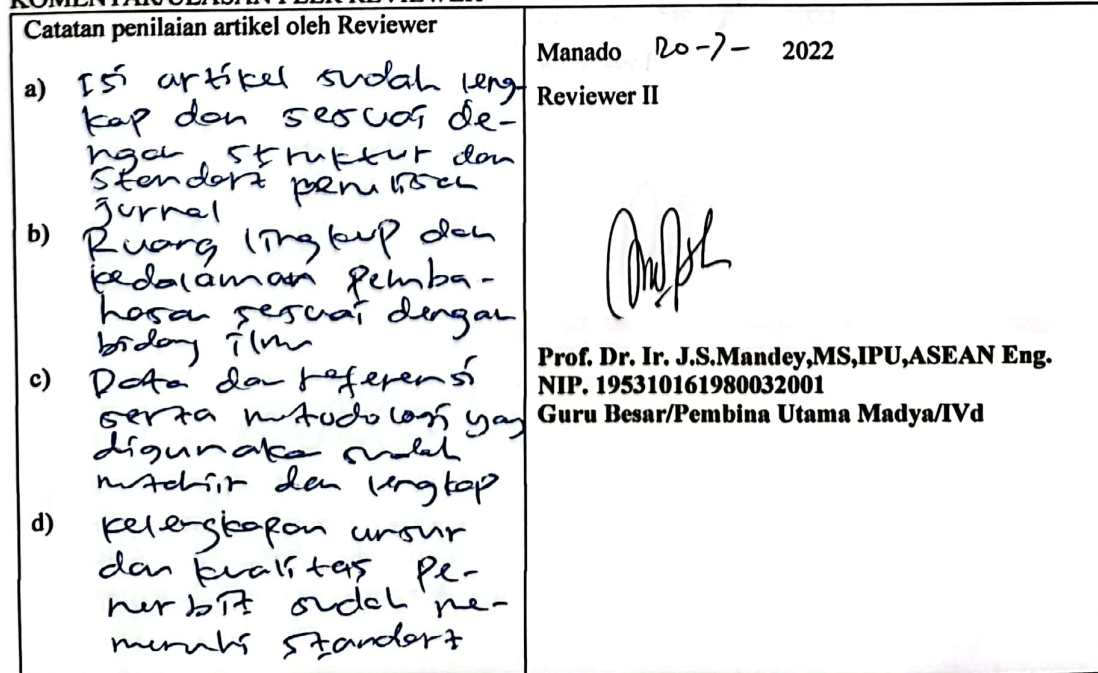 KOMENTAR/ULASAN PEER REVIEWER
Catatan penilaian artikel oleh Reviewer
a) Isi artikel sudah leng-
kap dan sesuai de-
ngan struktur dan
standart penulisan
jurnal
b) Ruang lingkup dan
kedalaman pemba-
hasan sesuai dengan
bidang ilmu
c) Data dan referensi
serta metodologi yang
digunakan sudah
dan lengkap
d) kelengkapan unsur
dan kualitas pe-
nerbit sudah me-
menuhi standart
Manado 20-7- 2022
Reviewer II
Prof. Dr. Ir. J.S.Mandey,MS,IPU,ASEAN Eng.
NIP. 195310161980032001
Guru Besar/Pembina Utama Madya/IVd